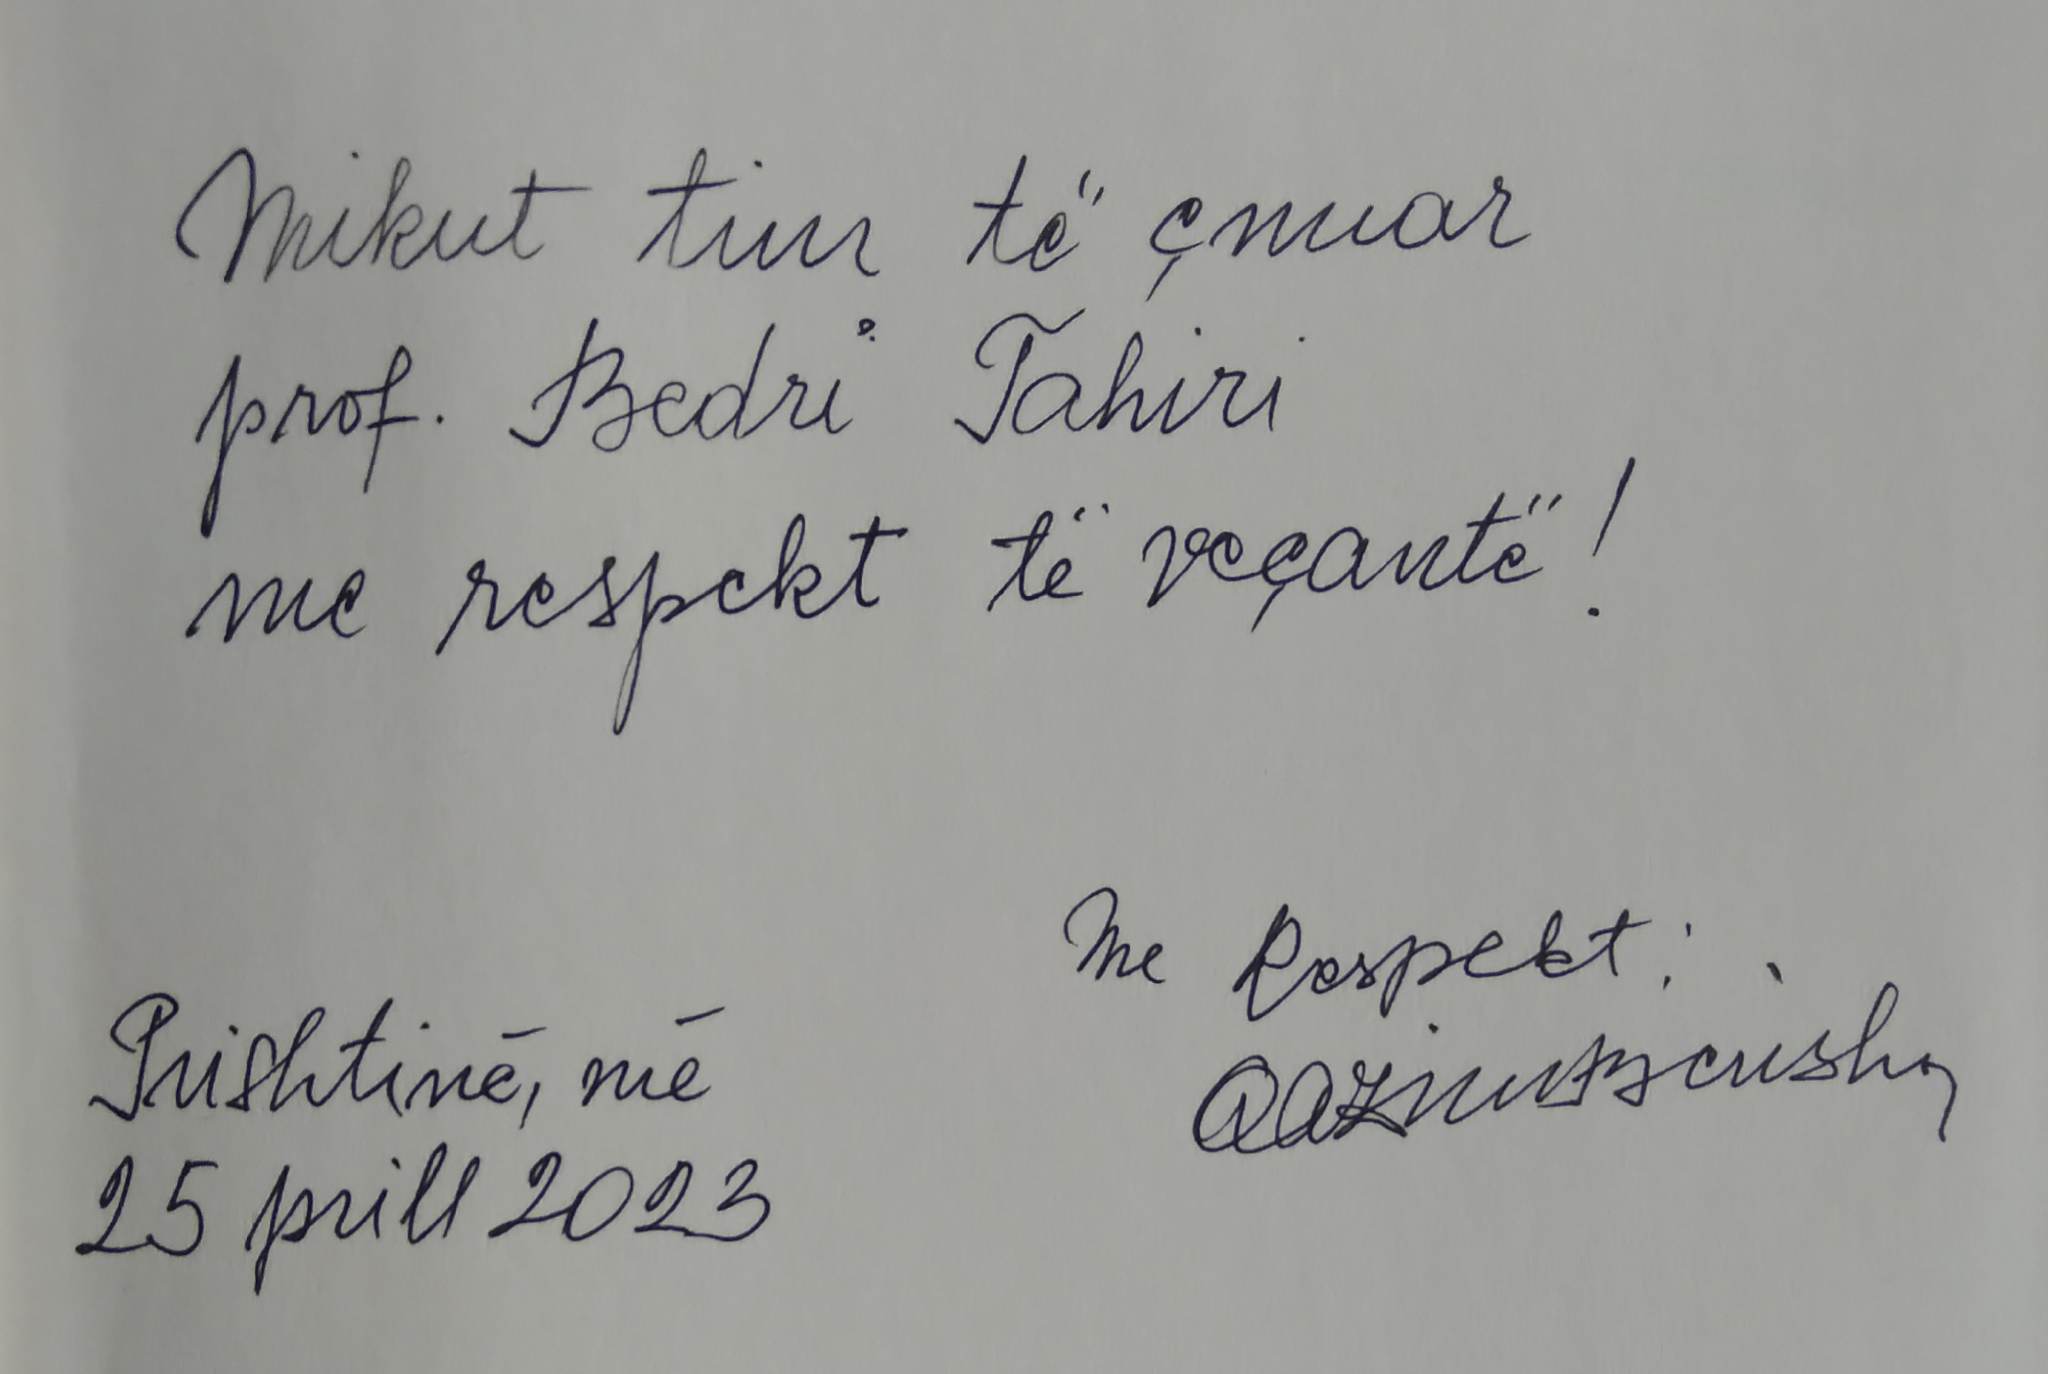 Mikut tim të çmuar
prof. Bedri Tahiri
me respekt të veçantë!
Me Respekt:
Qazim Berisha
Prishtinë, më
25 prill 2023